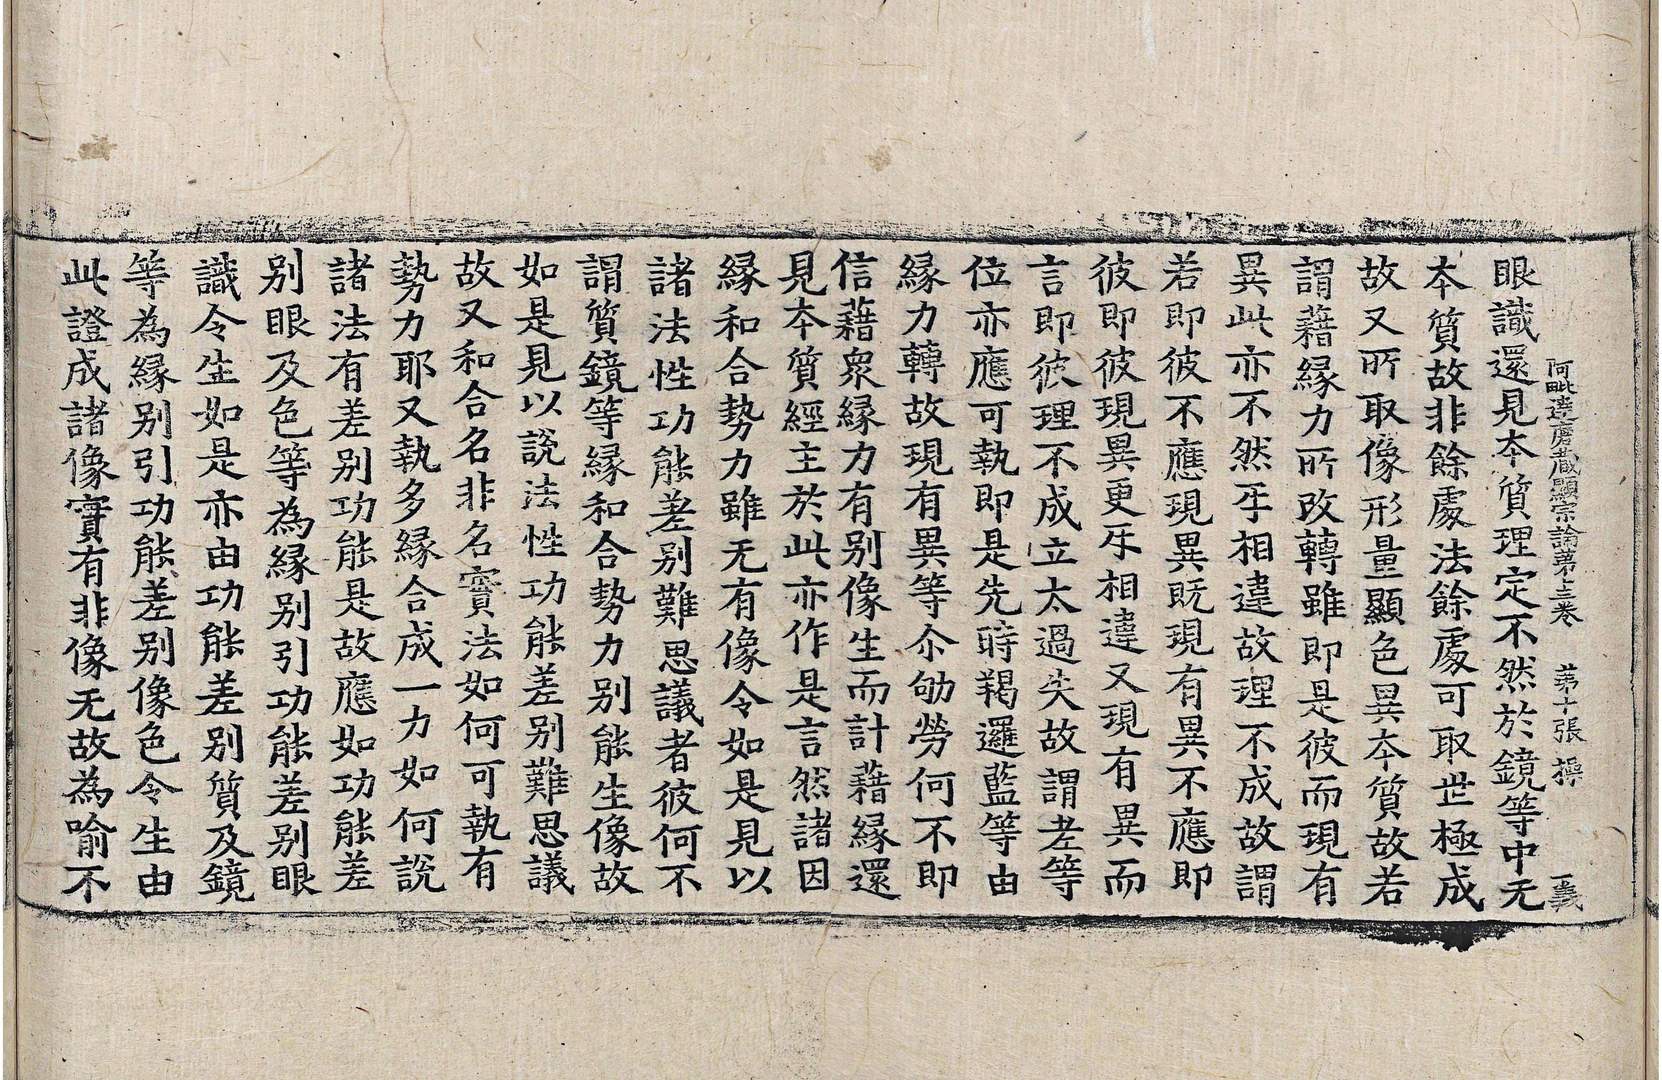 阿毗達磨藏顯宗論第十三卷 第十張 操 一義
眼識還見本質理定不然於鏡等中无
本質故非餘處法餘處可取世極成
故又所取像形量顯色異本質故若
謂藉緣力所改轉雖即是彼而現有
異此亦不然互相違故理不成故謂
若即彼不應現異既現有異不應即
彼即彼現異更互相違又現有異而
言即彼理不成立太過失故謂老等
位亦應可執即是先時羯邏藍等由
緣力轉故現有異等尒劬勞何不即
信藉衆緣力有別像生而計藉緣還
見本質經主於此亦作是言然諸因
緣和合勢力雖无有像令如是見以
諸法性功能差別難思議者彼何不
謂質鏡等緣和合勢力別能生像故
如是見以說法性功能差別難思議
故又和合名非名實法如何可執有
勢力耶又執多緣合成一力如何說
諸法有差別功能是故應如功能差
別眼及色等為緣別引功能差別眼
識令生如是亦由功能差別質及鏡
等為緣別引功能差別像色令生由
此證成諸像實有非像无故為喻不